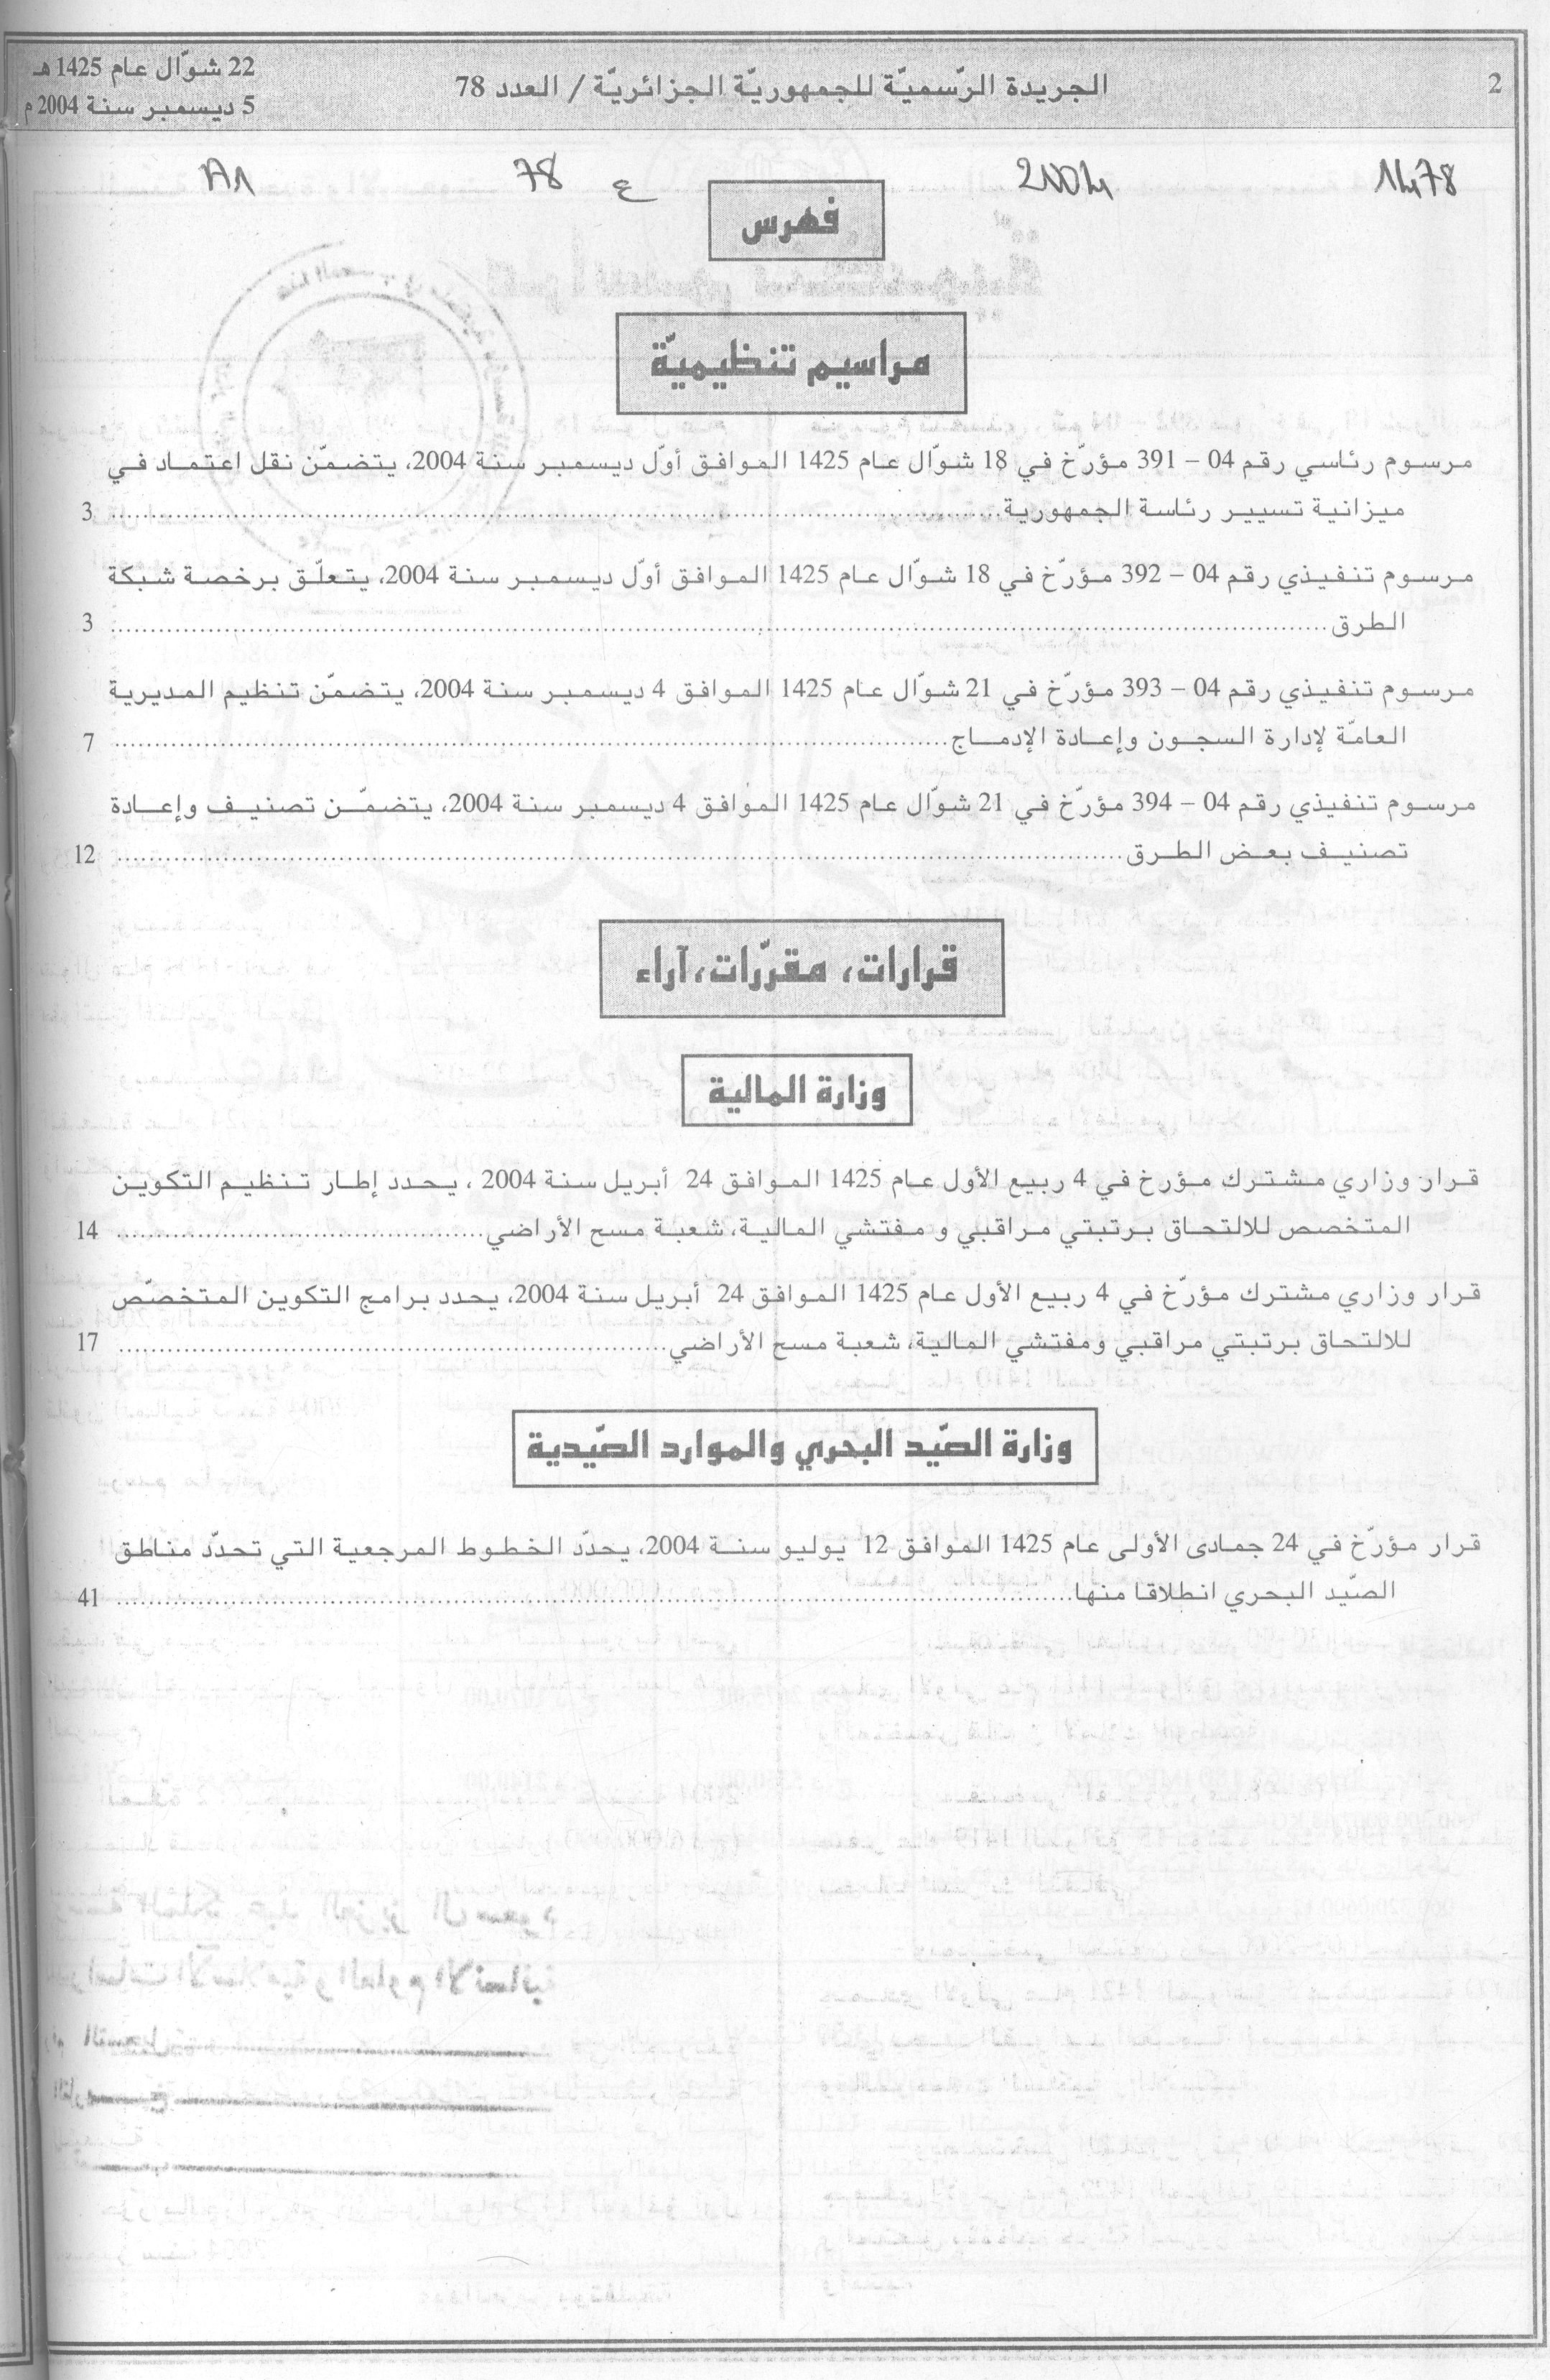 2
الجريدة الرّسميّة للجمهوريّة الجزائريّة / العدد 78
22 شوّال عام 1425 هـ
5 ديسمبر سنة 2004 م
1478 2004 ع 78
فهرس
مراسيم تنظيميّة
مرسوم رئاسي رقم 04 – 391 مؤرّخ في 18 شوّال عام 1425 الموافق أوّل ديسمبر سنة 2004، يتضمّن نقل اعتماد في
ميزانية تسيير رئاسة الجمهورية 3
مرسوم تنفيذي رقم 04 – 392 مؤرّخ في 18 شوّال عام 1425 الموافق أوّل ديسمبر سنة 2004، يتعلّق برخصة شبكة
الطرق 3
مرسوم تنفيذي رقم 04 – 393 مؤرّخ في 21 شوّال عام 1425 الموافق 4 ديسمبر سنة 2004، يتضمّن تنظيم المديرية
العامّة لإدارة السجون وإعادة الإدماج 7
مرسوم تنفيذي رقم 04 – 394 مؤرّخ في 21 شوّال عام 1425 الموافق 4 ديسمبر سنة 2004، يتضمّن تصنيف وإعادة
تصنيف بعض الطرق 12
قرارات، مقرّرات، آراء
وزارة المالية
قرار وزاري مشترك مؤرخ في 4 ربيع الأول عام 1425 الموافق 24 أبريل سنة 2004 ، يحدد إطار تنظيم التكوين
المتخصص للالتحاق برتبتي مراقبي و مفتشي المالية، شعبة مسح الأراضي 14
قرار وزاري مشترك مؤرّخ في 4 ربيع الأول عام 1425 الموافق 24 أبريل سنة 2004، يحدد برامج التكوين المتخصّص
للالتحاق برتبتي مراقبي ومفتشي المالية، شعبة مسح الأراضي 17
وزارة الصّيد البحري والموارد الصّيدية
قرار مؤرّخ في 24 جمادى الأولى عام 1425 الموافق 12 يوليو سنة 2004، يحدّد الخطوط المرجعية التي تحدّد مناطق
الصّيد البحري انطلاقا منها 41